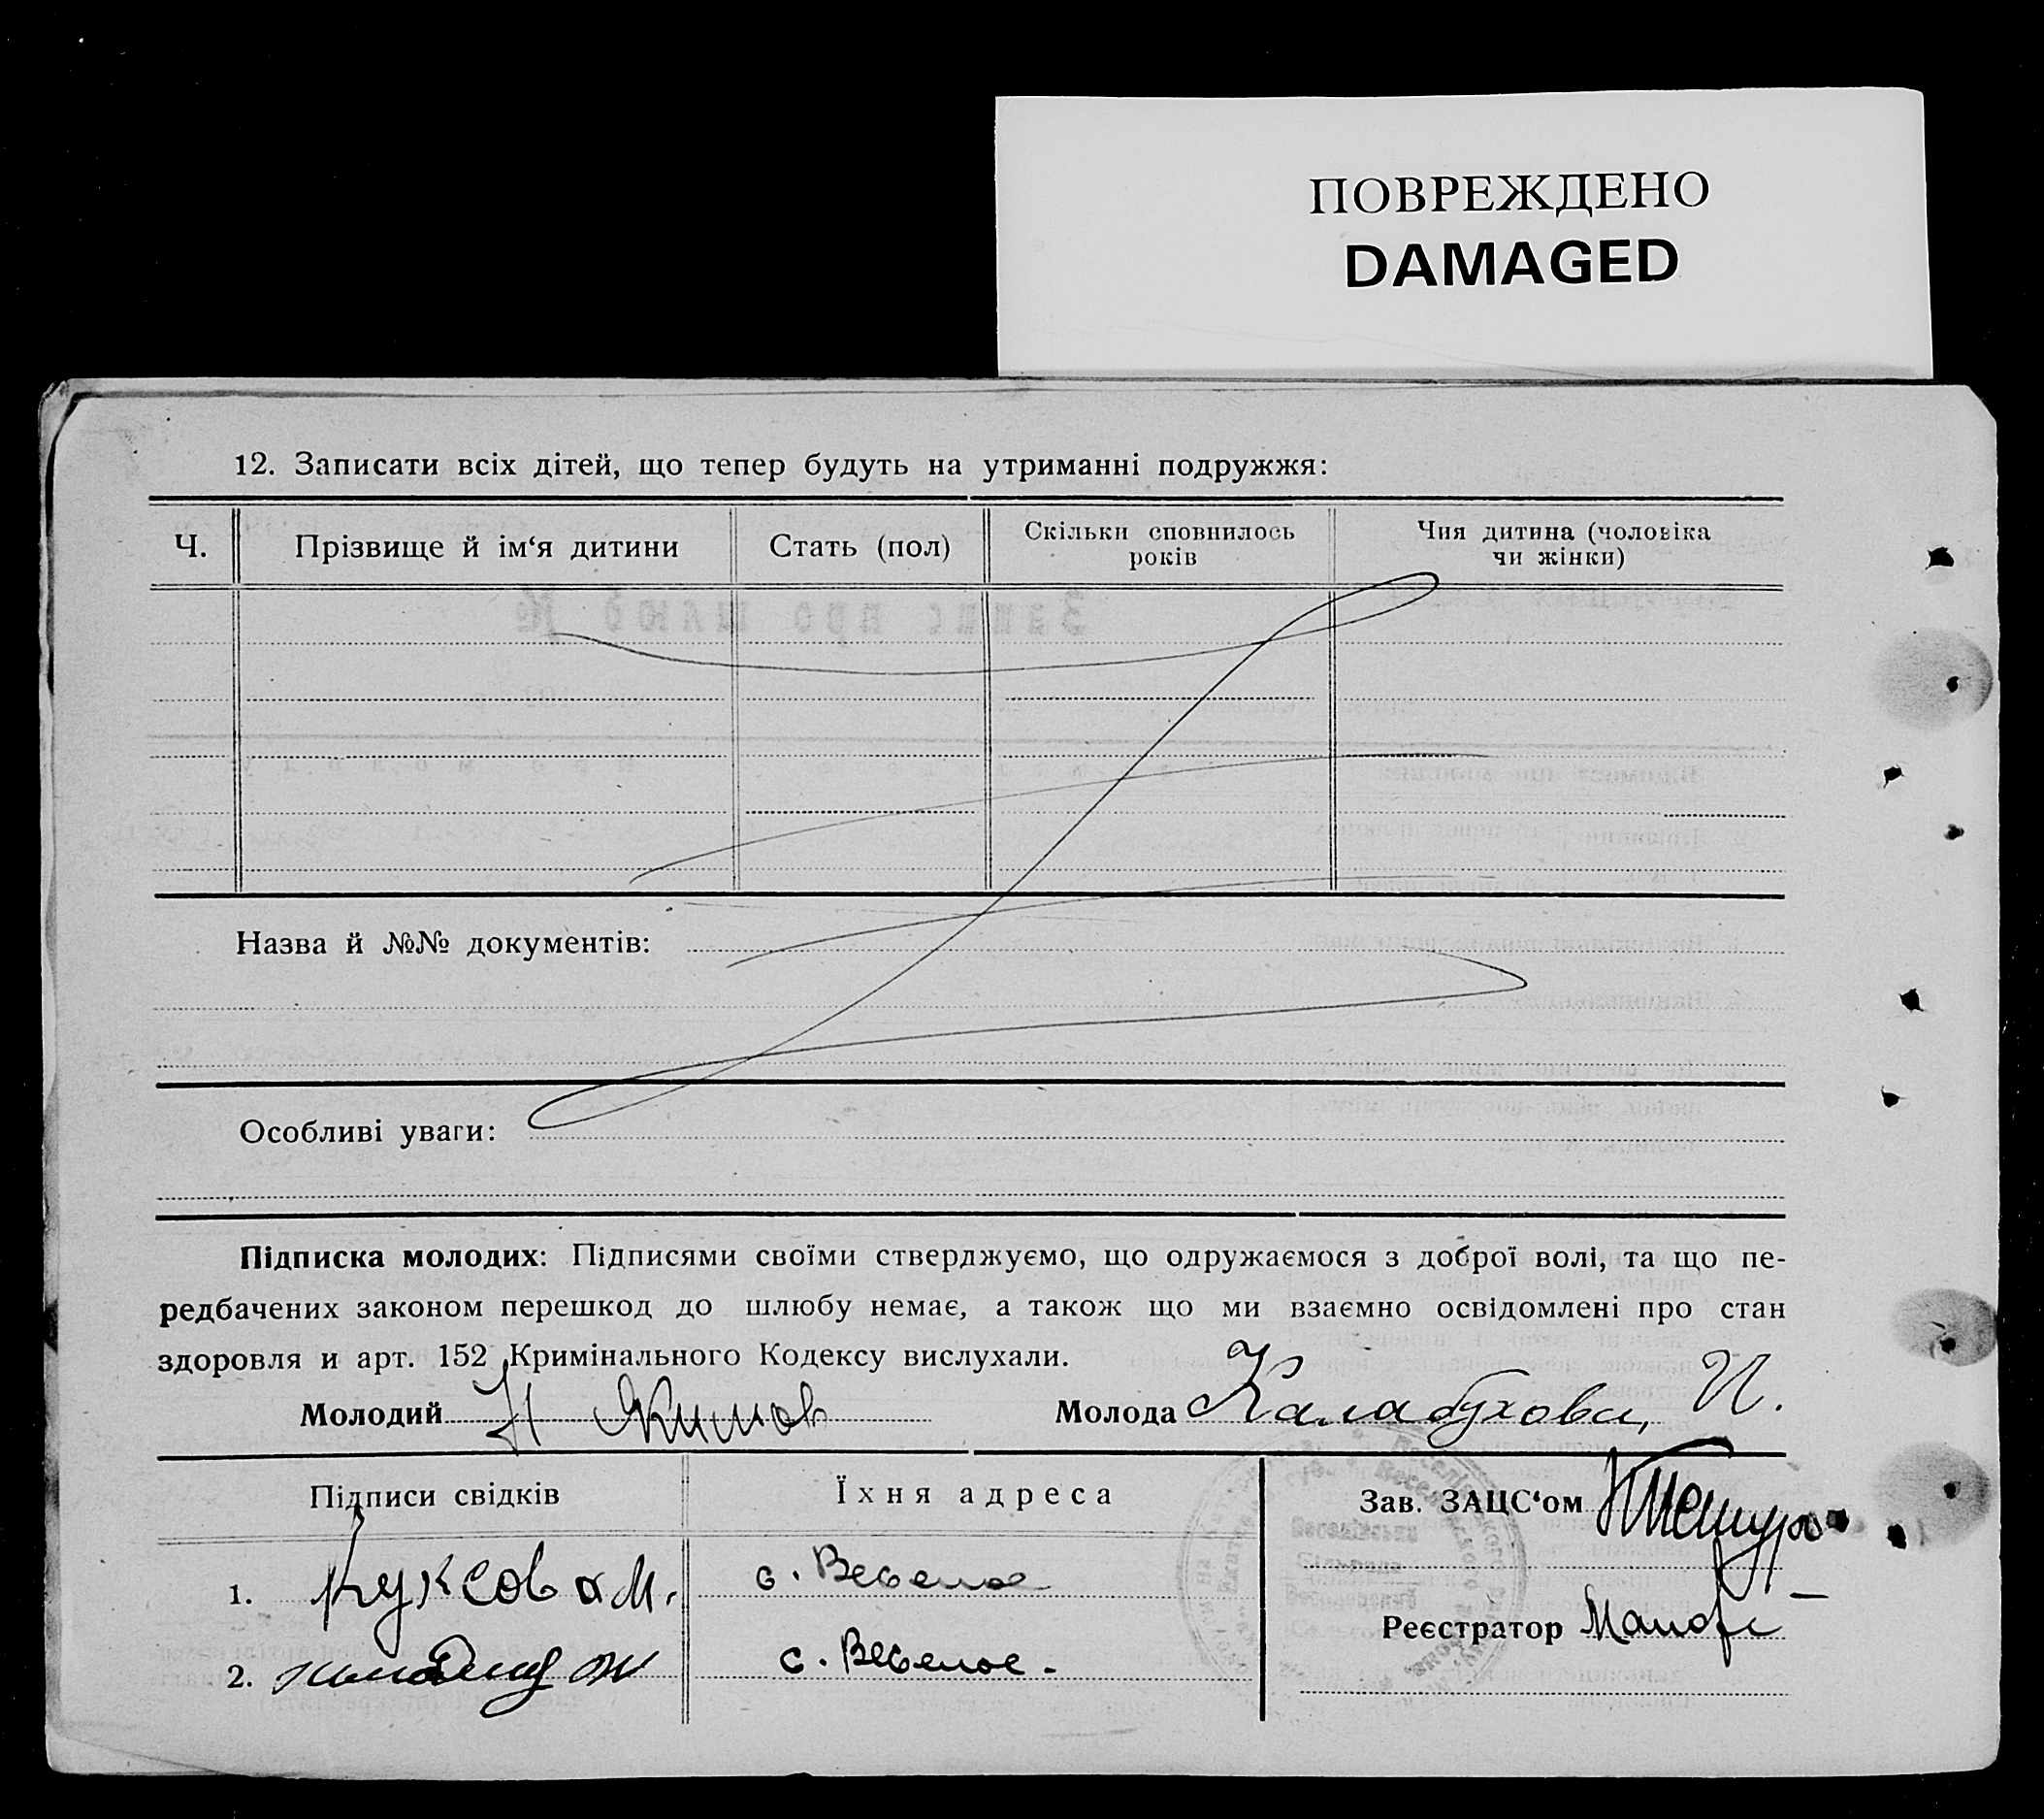 ПОВРЕЖДЕНО
DAMAGED
12. Записати всіх дітей, що тепер будуть на утриманні подружжя:
Ч. Прізвище й ім‘я дитини Стать (пол) Скільки сповнилось років Чия дитина (чоловіка чи жінки)
Назва й №№ документів:
Особливі уваги:
Підписка молодих: Підписями своїми стверджуємо, що одружаємося з доброї волі, та що пе-
редбачених законом перешкод до шлюбу немає, а також що ми взаємно освідомлені про стан
здоровля и арт. 152 Кримінального Кодексу вислухали.
Молодий Н Якимов Молода Калабухова, И.
Підписи свідків Їхня адреса Зав. ЗАЦС‘ом
1. Куксов М. с. Веселое
Реєстратор
2. с. Веселое.